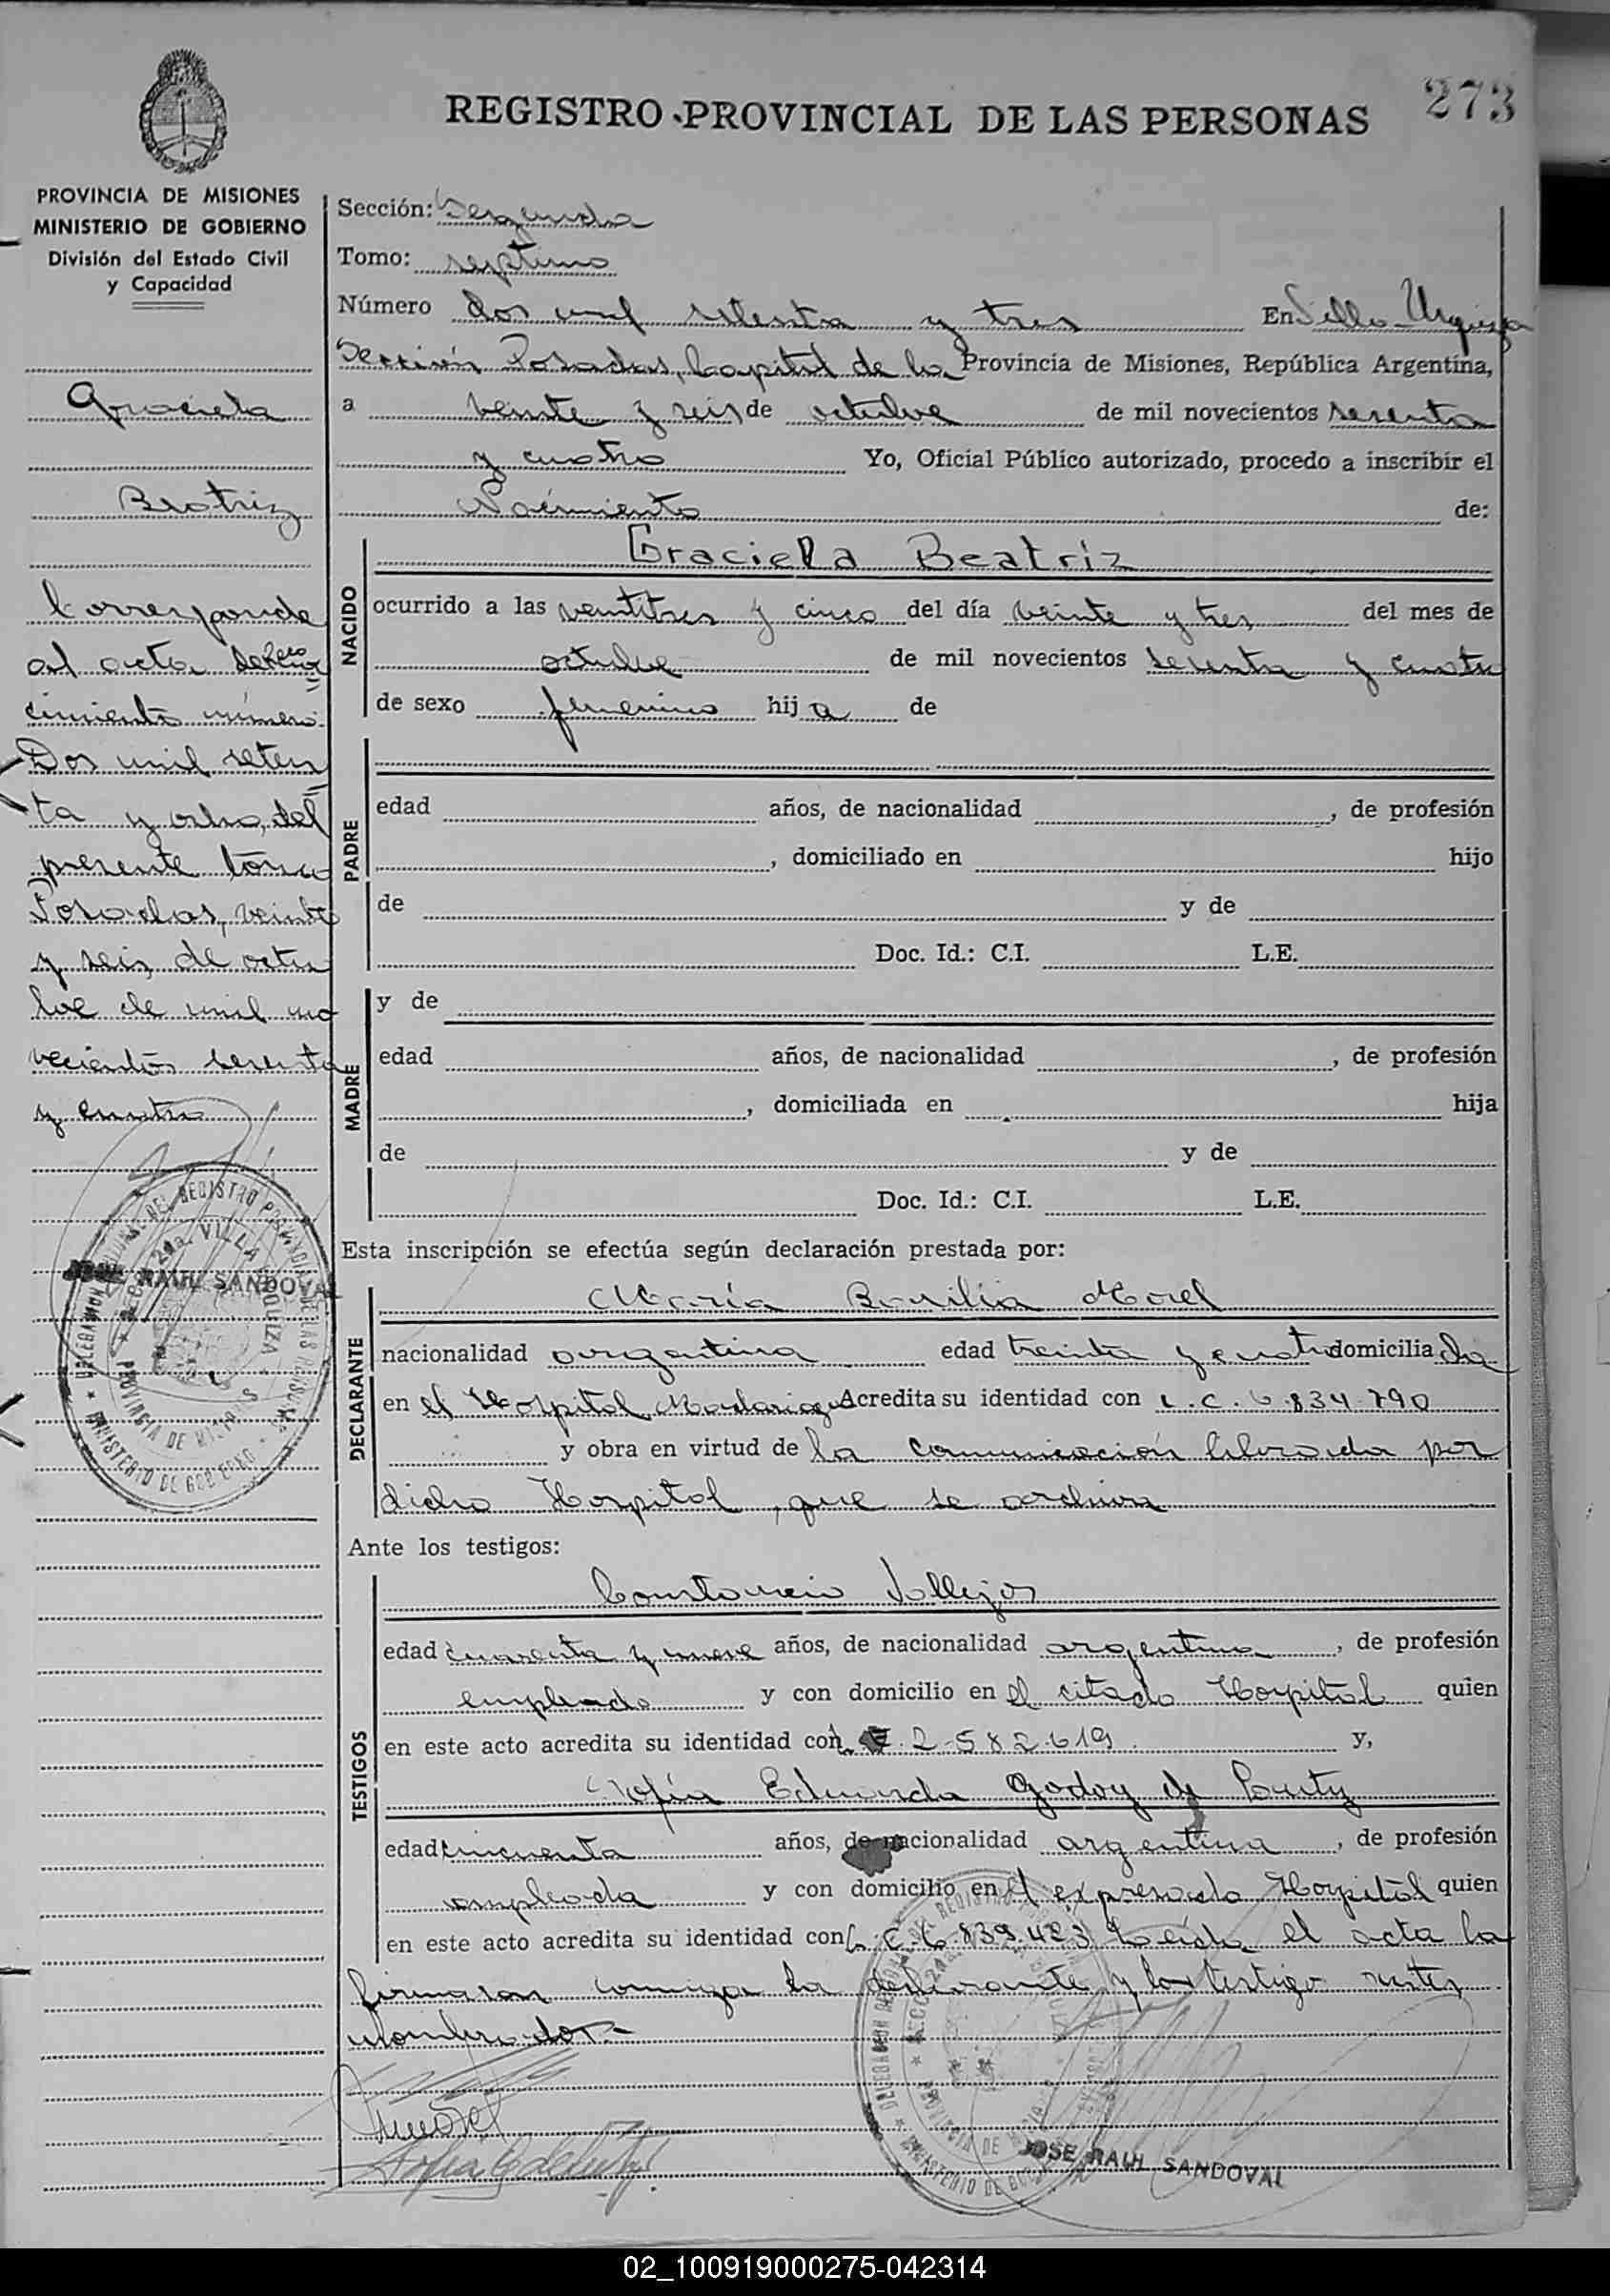 273
REGISTRO PROVINCIAL DE LAS PERSONAS
PROVINCIA DE MISIONES
MINISTERIO DE GOBIERNO
División del Estado Civil
y Capacidad
Graciela
Beatriz
Corresponde
al acta
cimiento número
Dos mil seten
ta y ocho, del
presente tomo
Posadas, veinte
y seis de octu
bre de mil no
vecientos sesenta
y cuatro
RAUL SANDOVAL
Sección: Segunda
Tomo: septimo
Número dos mil setenta y tres En Villa Urquiza
Sección Posadas, Capital de la Provincia de Misiones, República Argentina,
a veinte y seis de octubre de mil novecientos sesenta
y cuatro Yo, Oficial Público autorizado, procedo a inscribir el
Nacimiento de:
NACIDO
Graciela Beatriz
ocurrido a las veintitres y cinco del día veinte y tres del mes de
octubre de mil novecientos sesenta y cuatro
de sexo femenino hija de
PADRE
edad años, de nacionalidad , de profesión
, domiciliado en hijo
de y de
Doc. Id.: C.I. L.E.
MADRE
y de
edad años, de nacionalidad , de profesión
, domiciliada en hija
de y de
Doc. Id.: C.I. L.E.
Esta inscripción se efectúa según declaración prestada por:
DECLARANTE
María Basilia Morel
nacionalidad argentina edad treinta y cuatro domiciliada
en el Hospital Madariaga Acredita su identidad con L.C. 6.834.790
y obra en virtud de la comunicación librada por
dicho Hospital, que se archiva
Ante los testigos:
TESTIGOS
Constancio Vallejos
edad cuarenta y nueve años, de nacionalidad argentina, de profesión
empleado y con domicilio en el citado Hospital quien
en este acto acredita su identidad con 2.582.619 y,
Sofía Eduarda Godoy de
edad cincuenta años, de nacionalidad argentina, de profesión
empleada y con domicilio en el expresado Hospital quien
en este acto acredita su identidad con L.C. 6.839.423 Leída el acta la
firmaron conmigo la declarante y los testigo antes
nombrados.-
JOSE RAUL SANDOVAL
02_100919000275-042314